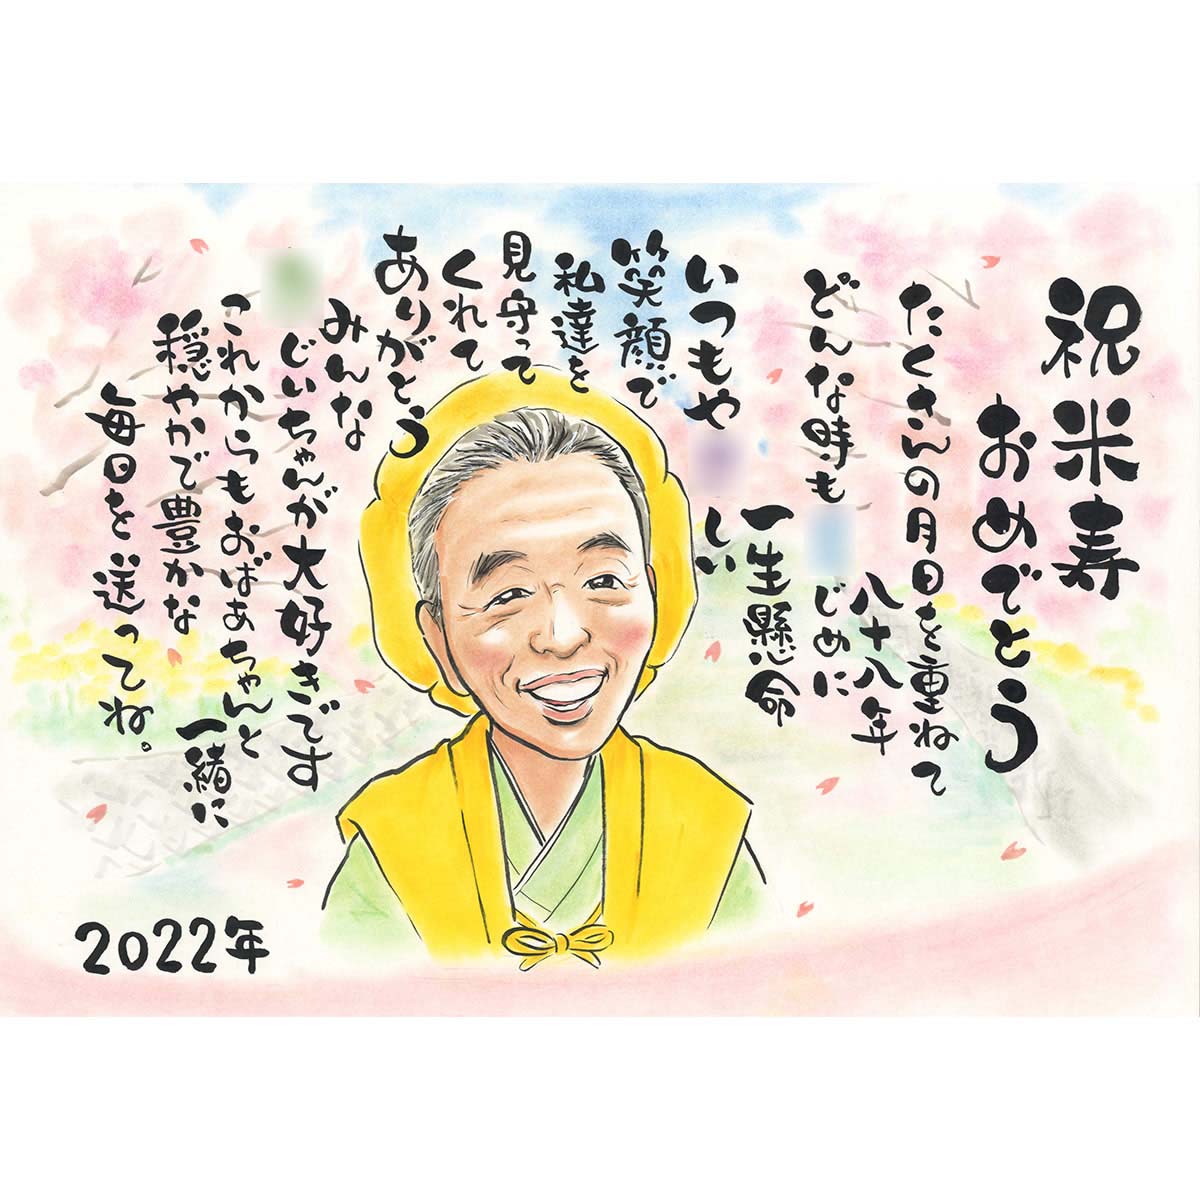 祝米寿
おめでとう
たくさんの月日を重ねて
八十八年
どんな時も
じめに
一生懸命
いつもや
しい
笑顔で
私達を
見守って
くれて
ありがとう
みんな
じいちゃんが大好きです
これからもおばあちゃんと
一緒に
穏やかで豊かな
毎日を送ってね。
2022年